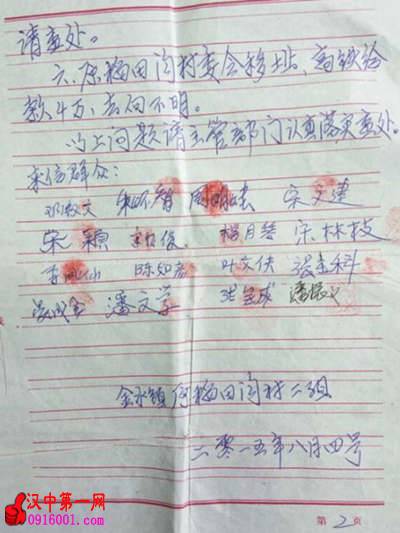 请查处。
六、原梅田沟村委会移址，高铁给
款4万，去向不明。
以上问题请主管部门认真落实查处。
来信群众：
宋文建
宋颖 杨月琴 宋林枝
陈知 叶文侠 张志科
潘文学 张宝成 潘振义
金水镇 梅田沟村二组
二零一五年八月四号
汉中第一网
0916001.com
第2页